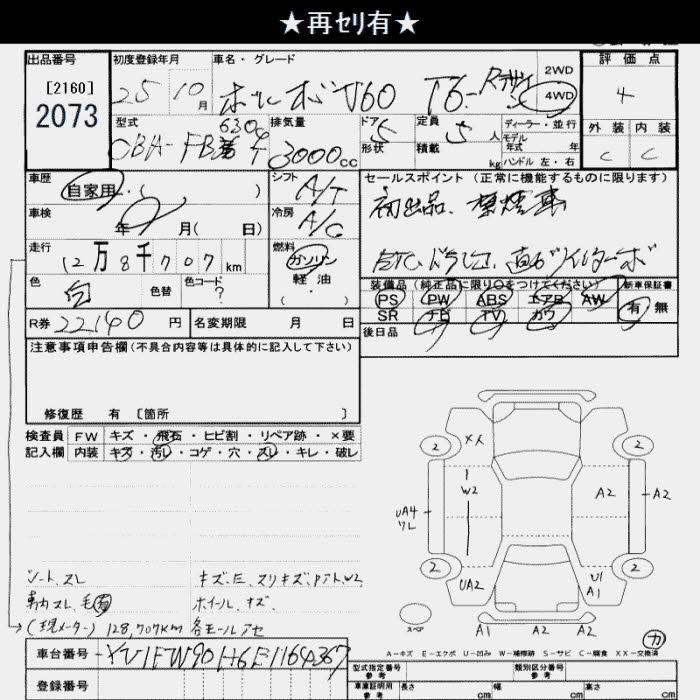 ★再セリ有★
出品番号 初度登録年月 車名・グレード 評価点
[2160]
2073
25 10月 ボルボ V60 T6-Rデザイン 2WD 4WD 4
型式 排気量 ドア 定員 ディーラー・並行 外装 内装
6304
DBA-FB T 3000cc 5 5人 モデル 年式 年 C C
形状 積載 kg ハンドル 左・右
車歴 自家用・( ) シフト A/T セールスポイント (正常に機能するものに限ります)
初出品、禁煙車
車検 年 月(日) 冷房 A/C
ETC、ドラレコ、直6ツインターボ
走行 12万8千707km 燃料 ガソリン 軽油・
色 白 色替 色コード ?
装備品(純正品に限り○をつけてください) 新車保証書
PS PW ABS エアB AW 有 無
SR ナビ TV カワ
R券 22140円 名変期限 月 日 後日品
注意事項申告欄(不具合内容等は具体的に記入して下さい)
修復歴 有 [箇所 ]
検査員 FW キズ・飛石・ヒビ割・リペア跡・×要
記入欄 内装 キズ・汚レ・コゲ・穴・スレ・キレ・破レ
2 XX 2
W2 A2 A2
UA4
ワレ
2 UA2 U1 A1 2
シート、スレ キズ、E、スリキズ、アト、W2
車内スレ、毛有 ホイール、キズ、
(現メーター) 128,707km 各モールアセ
スペア A1 A2 A2 カ
A-キズ E-エクボ U-凹み W-補修跡 S-サビ C-腐食 XX-交換済
車台番号 YV1FW90H6E1164367
登録番号
型式指定番号 参考 類別区分番号 参考
車庫証明用 参考 長さ cm 幅 cm 高さ cm